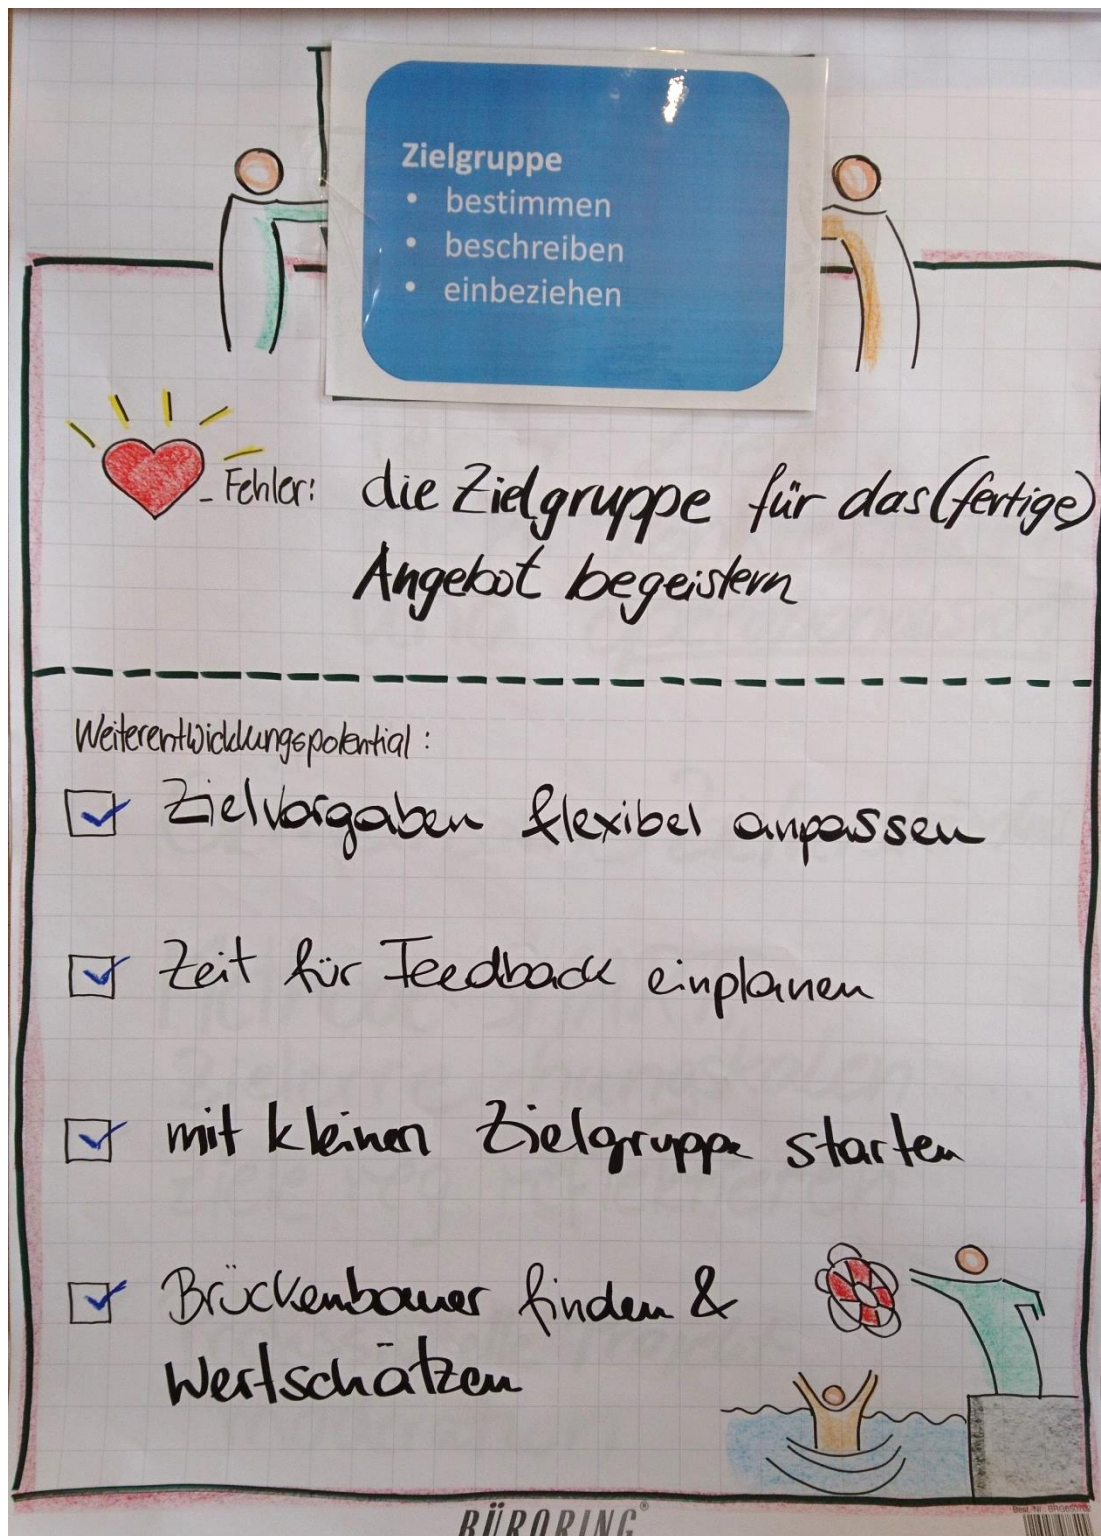 Zielgruppe
• bestimmen
• beschreiben
• einbeziehen
- Fehler: die Zielgruppe für das (fertige)
Angebot begeistern
Weiterentwicklungspotential:
Zielvorgaben flexibel anpassen
Zeit für Feedback einplanen
mit kleinen Zielgruppe starten
Brückenbauer finden &
Wertschätzen
BÜRORING®